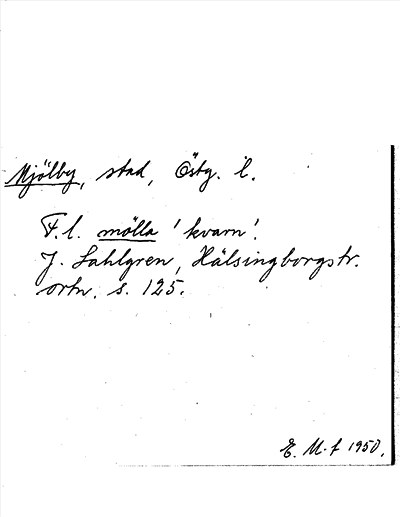 Mjölby, stad, Östg. l.
F.l. mölla 'kvarn'.
J. Sahlgren, Hälsingborgstr.
ortn. s. 125.
E. M-f 1950.